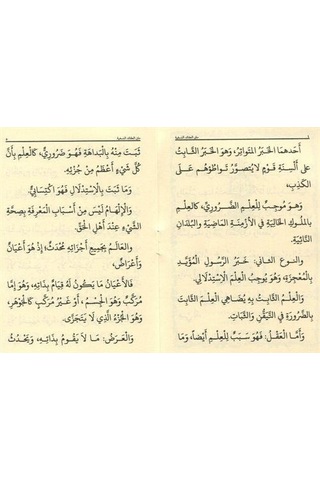 متن العقائد النسفية
أَحَدهمَا الخَبَرُ المُتَوَاتِرُ، وَهوَ الخَبَرُ الثَّابِتُ
عَلى أَلسِنَةِ قَومٍ لَا يُتَصوَّرُ تَواطُؤهُم عَلَى
الكَذِبِ،
وَهوَ مُوجِبٌ لِلْعِلمِ الضَّرُورِيِّ، كَالعِلمِ
بِالمُلُوكِ الخَالِيَةِ في الأَزْمِنَةِ المَاضِيَةِ وَالبُلْدَانِ
النَّائِيَةِ.
والنوع الثاني: خَبَرُ الرَّسُولِ المُؤَيَّدِ
بِالمُعْجِزَةِ، وَهُوَ يُوجِبُ العِلْمَ الِاسْتِدْلَالِي.
وَالعِلمُ الثَّابِتُ بِهِ يُضَاهِي العِلْمَ الثَّابِتَ
بِالضَّرُورَةِ فِي التَّيَقُّنِ وَالثَّبَاتِ.
وَأَمَّا العَقْلُ: فَهُوَ سَبَبٌ لِلْعِلمِ أَيْضاً، وَمَا
متن العقائد النسفية
ثَبَتَ مِنْهُ بِالْبَدَاهَةِ فَهُوَ ضَرُورِيٌّ، كَالعِلْمِ بِأَنَّ
كُلَّ شَيْءٍ أَعْظَمُ مِنْ جُزْئِهِ.
وَمَا ثَبَتَ بِالِاسْتِدْلَالِ فَهُوَ اكْتِسَابِيٌّ.
وَالْإِلْهَامُ لَيْسَ مِنْ أَسْبَابِ المَعْرِفَةِ بِصِحَّةِ
الشَّيْءِ عِنْدَ أَهْلِ الحَقِّ.
وَالعَالَمُ بِجَمِيعِ أَجْزَائِهِ مُحْدَثٌ؛ إِذْ هُوَ أَعْيَانٌ
وَأَعْرَاضٌ،
فَالأَعْيَانُ مَا يَكُونُ لَهُ قِيَامٌ بِذَاتِهِ، وَهُوَ إِمَّا
مُرَكَّبٌ وَهُوَ الجِسْمُ، أَوْ غَيْرُ مُرَكَّبٍ كَالجَوْهَرِ،
وَهُوَ الجُزْءُ الَّذِي لَا يَتَجَزَّى.
وَالعَرَضُ: مَا لَا يَقُومُ بِذَاتِهِ، وَيَحْدُثُ